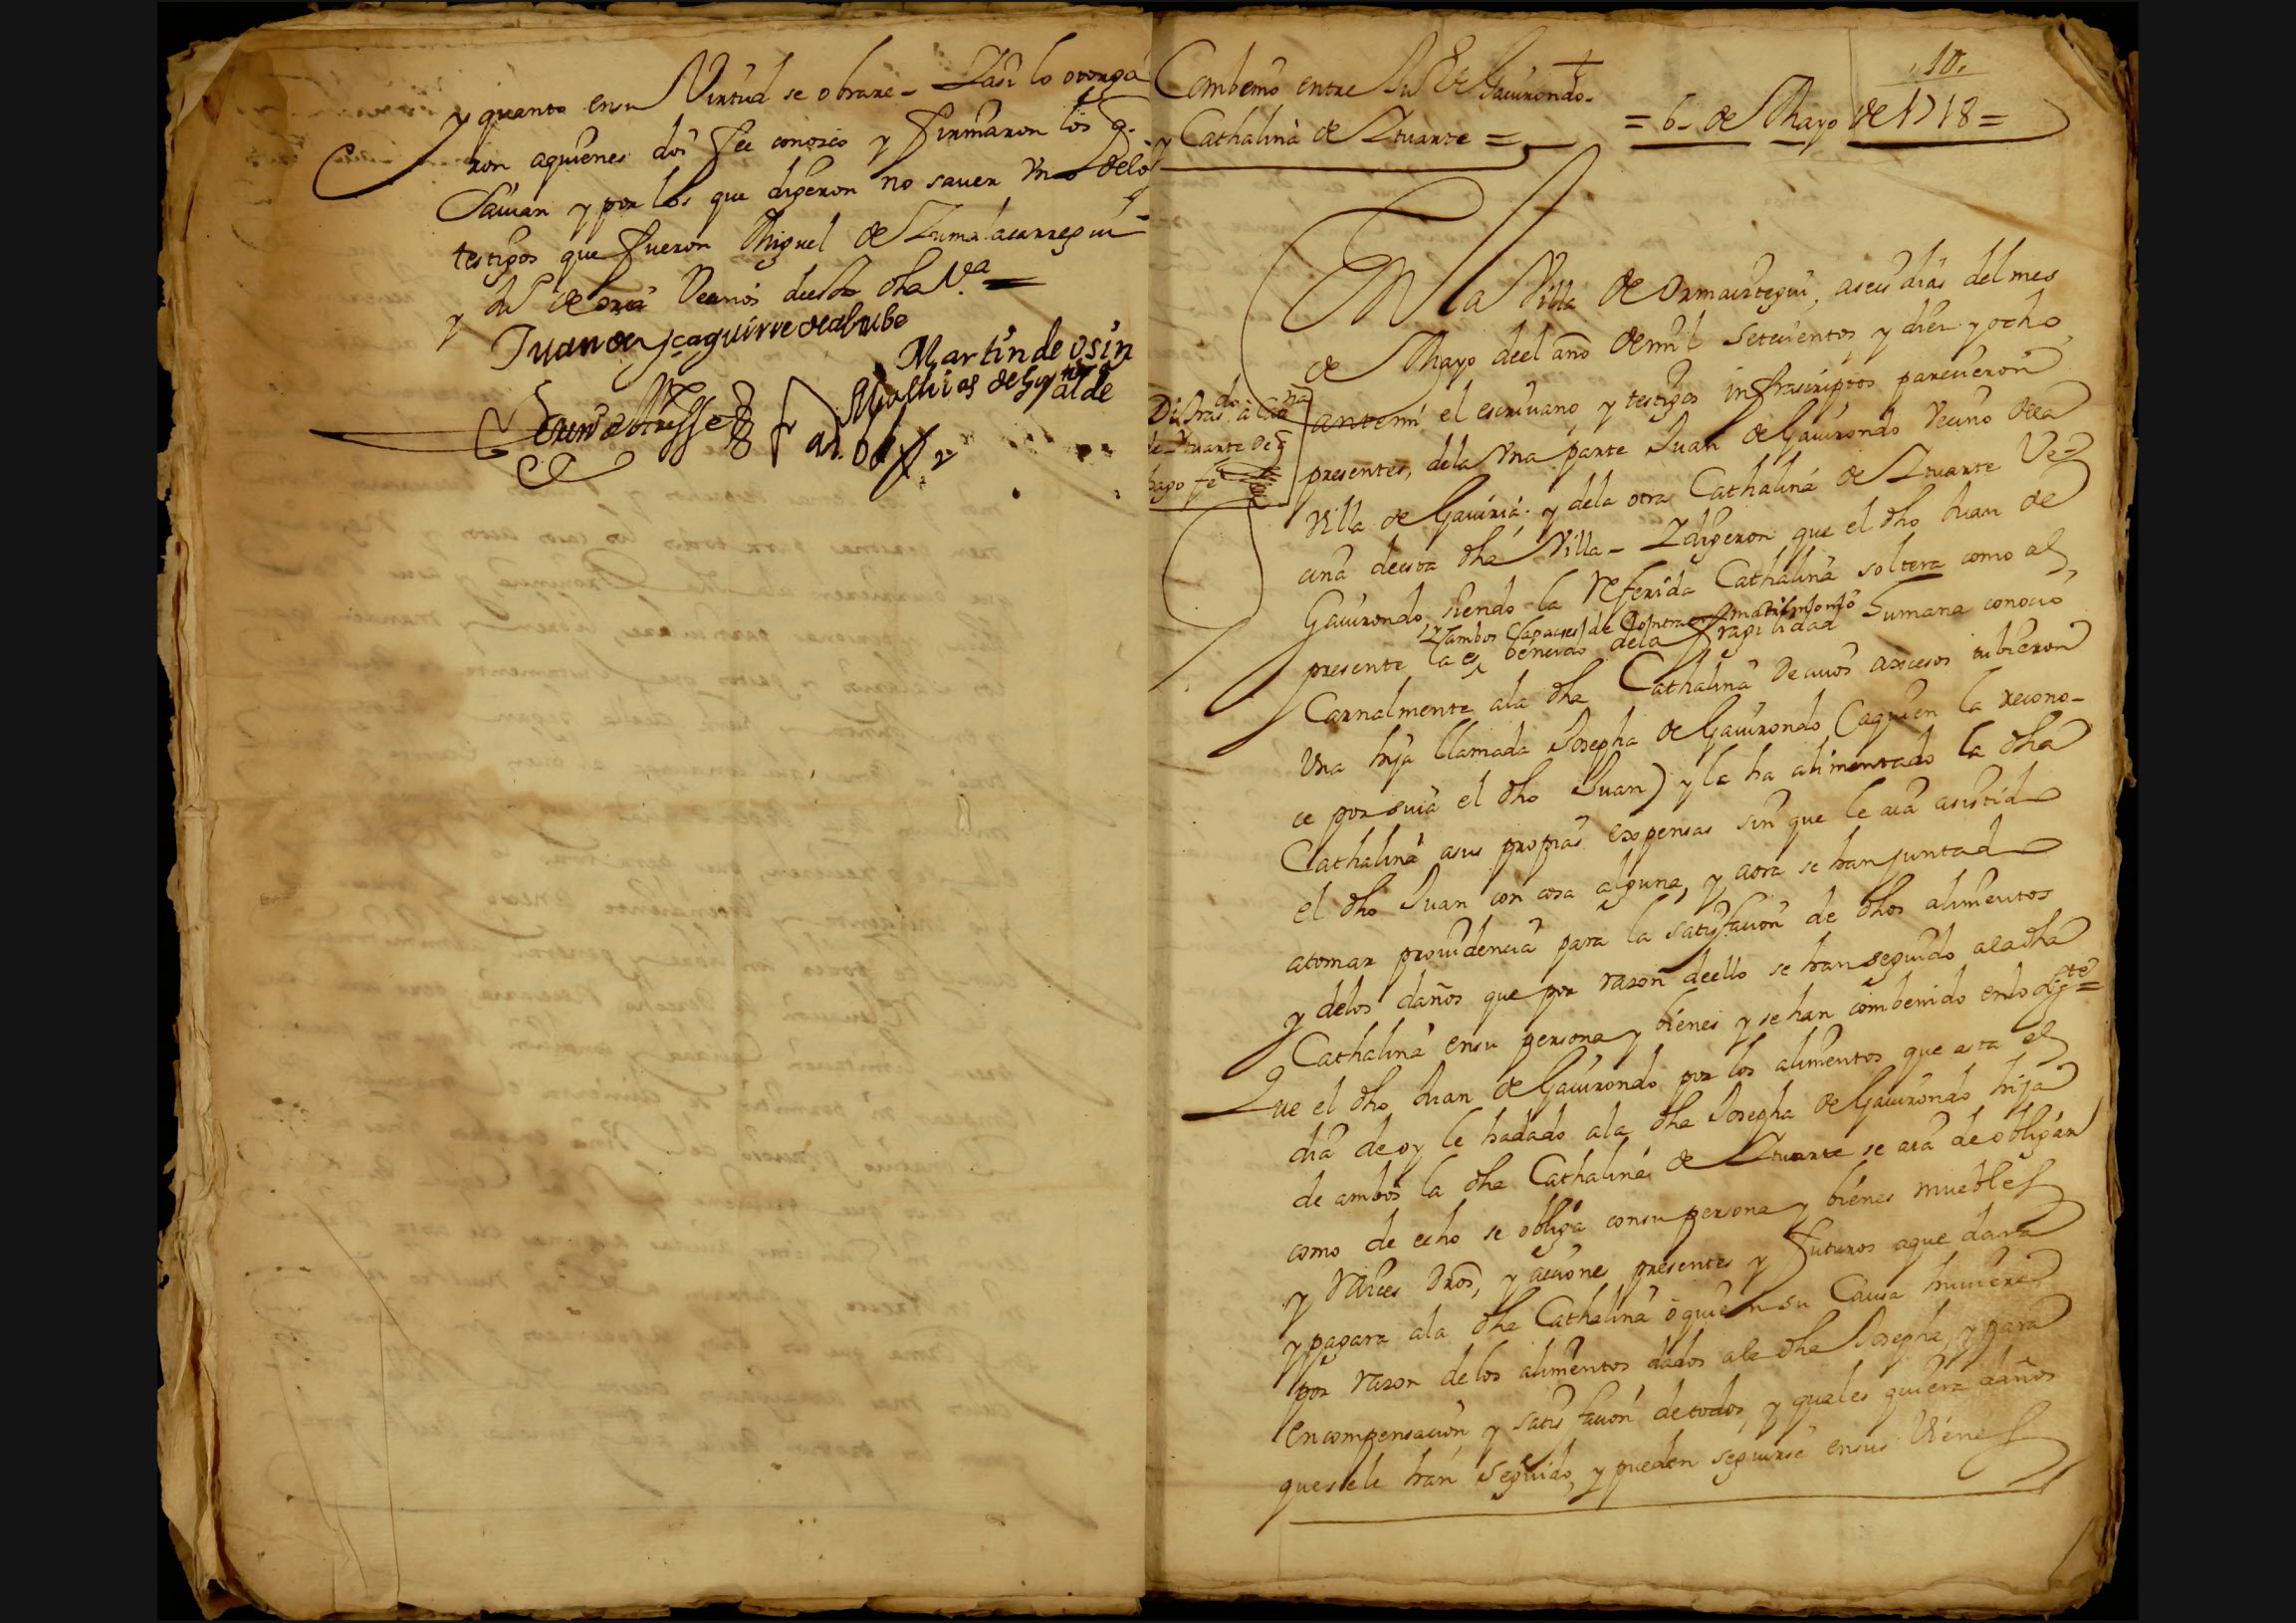 y quanto ensu Virtud se obrare - Yasi lo otorga
ron aquienes doi fee conozco y firmaron los q.
Sauian y por los que digeron no sauer Vno delos
testigos que fueron Miguel de Zumalacarregui
y Ju° de oria Vecinos deesta dha Va =
Juan de yçaguirre
Martin de osin
alde
Combenio entre Ju° de Gauirondo
y Cathalina de Ytuarte =
= 6 - de Mayo de 1718 =
10.
En la Villa de Ormaiztegui, aseis dias del mes
de Mayo deel año demil Setecientos y diez y ocho
antemi el escriuano y testigos infrascriptos parecieron
presentes, dela Vna parte Juan de Gauirondo Vecino dela
Villa de Gauiria; y dela otra Cathalina de Ytuarte Ve-
cina deesta dha Villa - Y digeron que el dho Juan de
Gauirondo, siendo la Referida Cathalina soltera como al
y ambos Capaces de Contraer matrimonio
presente la es bencido dela fragilidad humana conocio
Carnalmente ala dha Cathalina Decuios accesos tubieron
Vna hija llamada Josepha de Gauirondo (aquien la recono-
ce por suia el dho Juan) y la ha alimentado la dha
Cathalina asus propias expensas sin que le aia asistido
el dho Juan con cosa alguna, y aora se han juntado
atomar prouidencia para la satisfacion de dhos alimentos
y delos daños que por razon deello se han seguido ala dha
Cathalina ensu persona y bienes y se han combenido enlo sigte =
Que el dho Juan de Gauirondo por los alimentos que asta el
dia de oy le hadado ala dha Josepha de Gauirondo hija
de ambos la dha Cathalina de Ytuarte se aia de obligar
como de echo se obliga consu persona y bienes muebles
y Raices Dros, y acciones presentes y futuros aque dara
y pagara ala dha Cathalina o quien su Causa huuiere
por razon delos alimentos dados ala dha Josepha y para
En compensacion y satisfacion detodos, y quales quiera daños
quesele han Seguido, y pueden seguirse ensus Vienes
hago fe